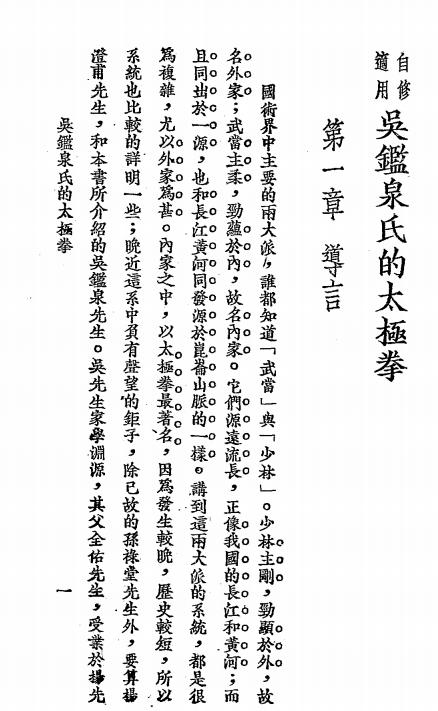 自修
適用
吳鑑泉氏的太極拳
第一章 導言
國術界中主要的兩大派，誰都知道「武當」與「少林」。少林主剛，勁顯於外，故
名外家；武當主柔，勁蘊於內，故名內家。它們源遠流長，正像我國的長江和黃河；而
且同出於一源，也和長江黃河同發源於崑崙山脈的一樣。講到這兩大派的系統，都是很
爲複雜，尤以外家爲甚。內家之中，以太極拳最著名，因爲發生較晚，歷史較短，所以
系統也比較的詳明一些；晚近這系中負有聲望的鉅子，除已故的孫祿堂先生外，要算楊
澄甫先生，和本書所介紹的吳鑑泉先生。吳先生家學淵源，其父全佑先生，受業於楊先
吳鑑泉氏的太極拳
一